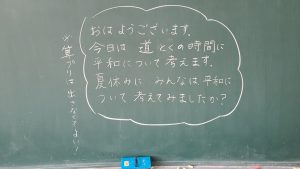 おはようございます。
今日は 道とくの時間に
平和について考えます。
夏休みに みんなは平和に
ついて 考えてみましたか?
※算プリは出さなくてよい!